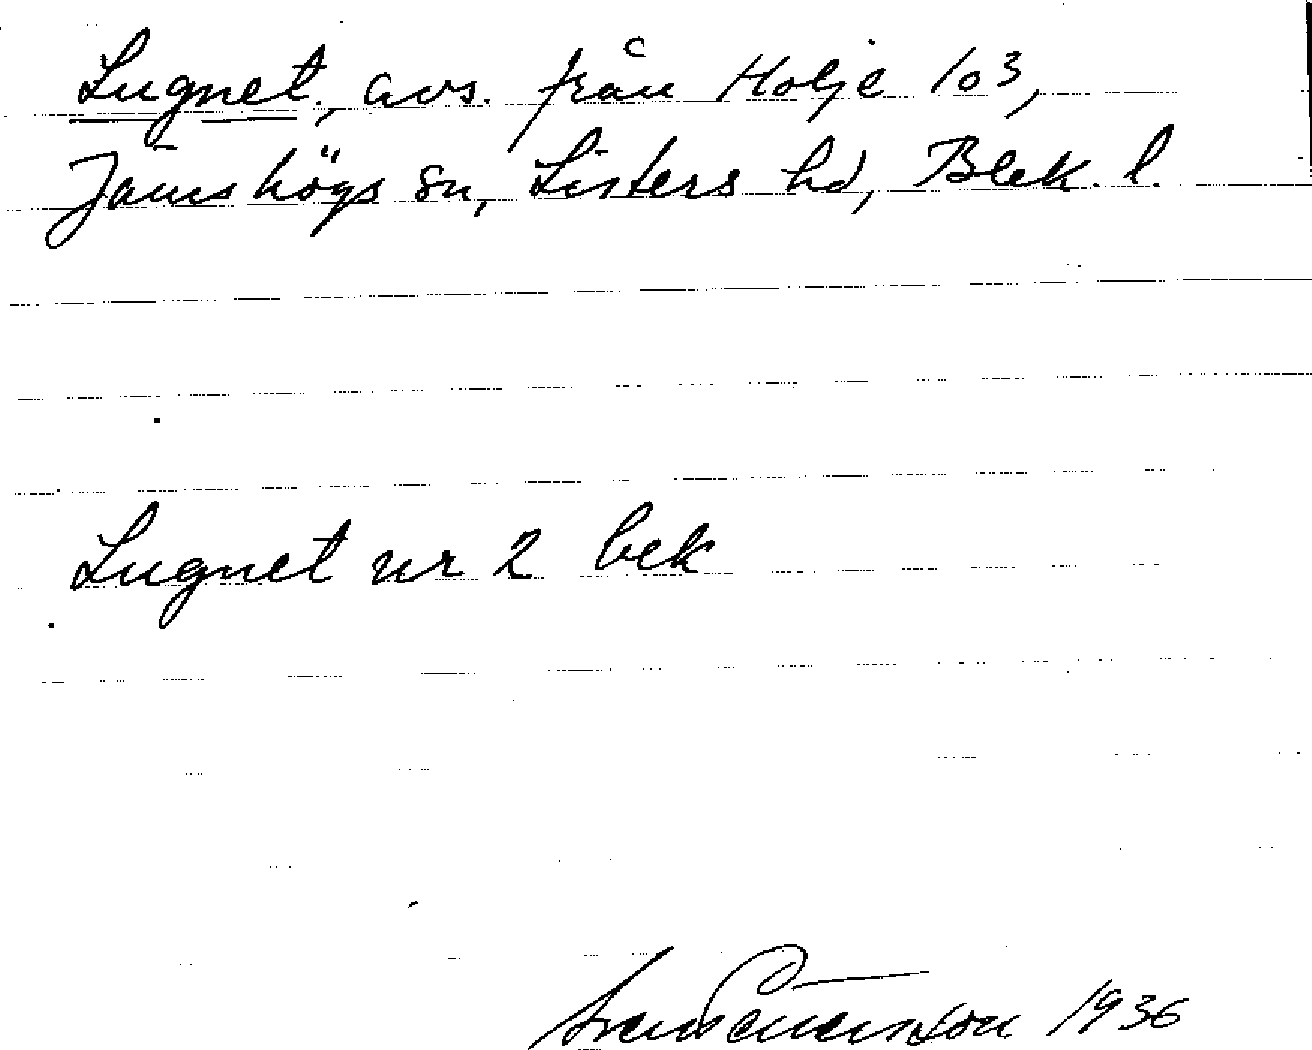 Lugnet, avs. från Holje 103,
Jämshögs sn, Listers hd, Blek. l.
Lugnet nr 2 bek
1936